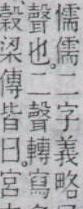 懦儒二字義略
聲也。二聲轉寫
穀梁傳皆曰。宮